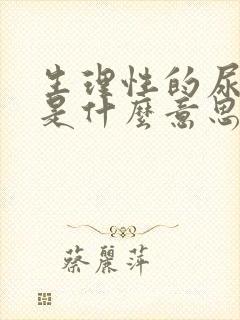 生理性的尿
是什麼意思
蔡麗萍